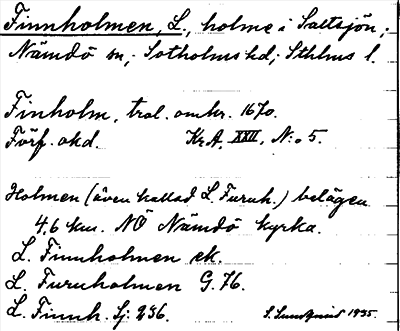 Finnholmen, L., holme i Saltsjön;
Nämdö sn; Sotholms hd; Sthlms l.
Finholm, tral. omkr. 1670.
Förf. okd. Kr.A, XXII, N:o 5.
Holmen (även kallad L. Furuh.) belägen
4,6 km. NÖ Nämdö kyrka.
L. Finnholmen ek.
L. Furuholmen G. 76.
L. Finnh. Sj: 236. S. Sundqvist 1935.